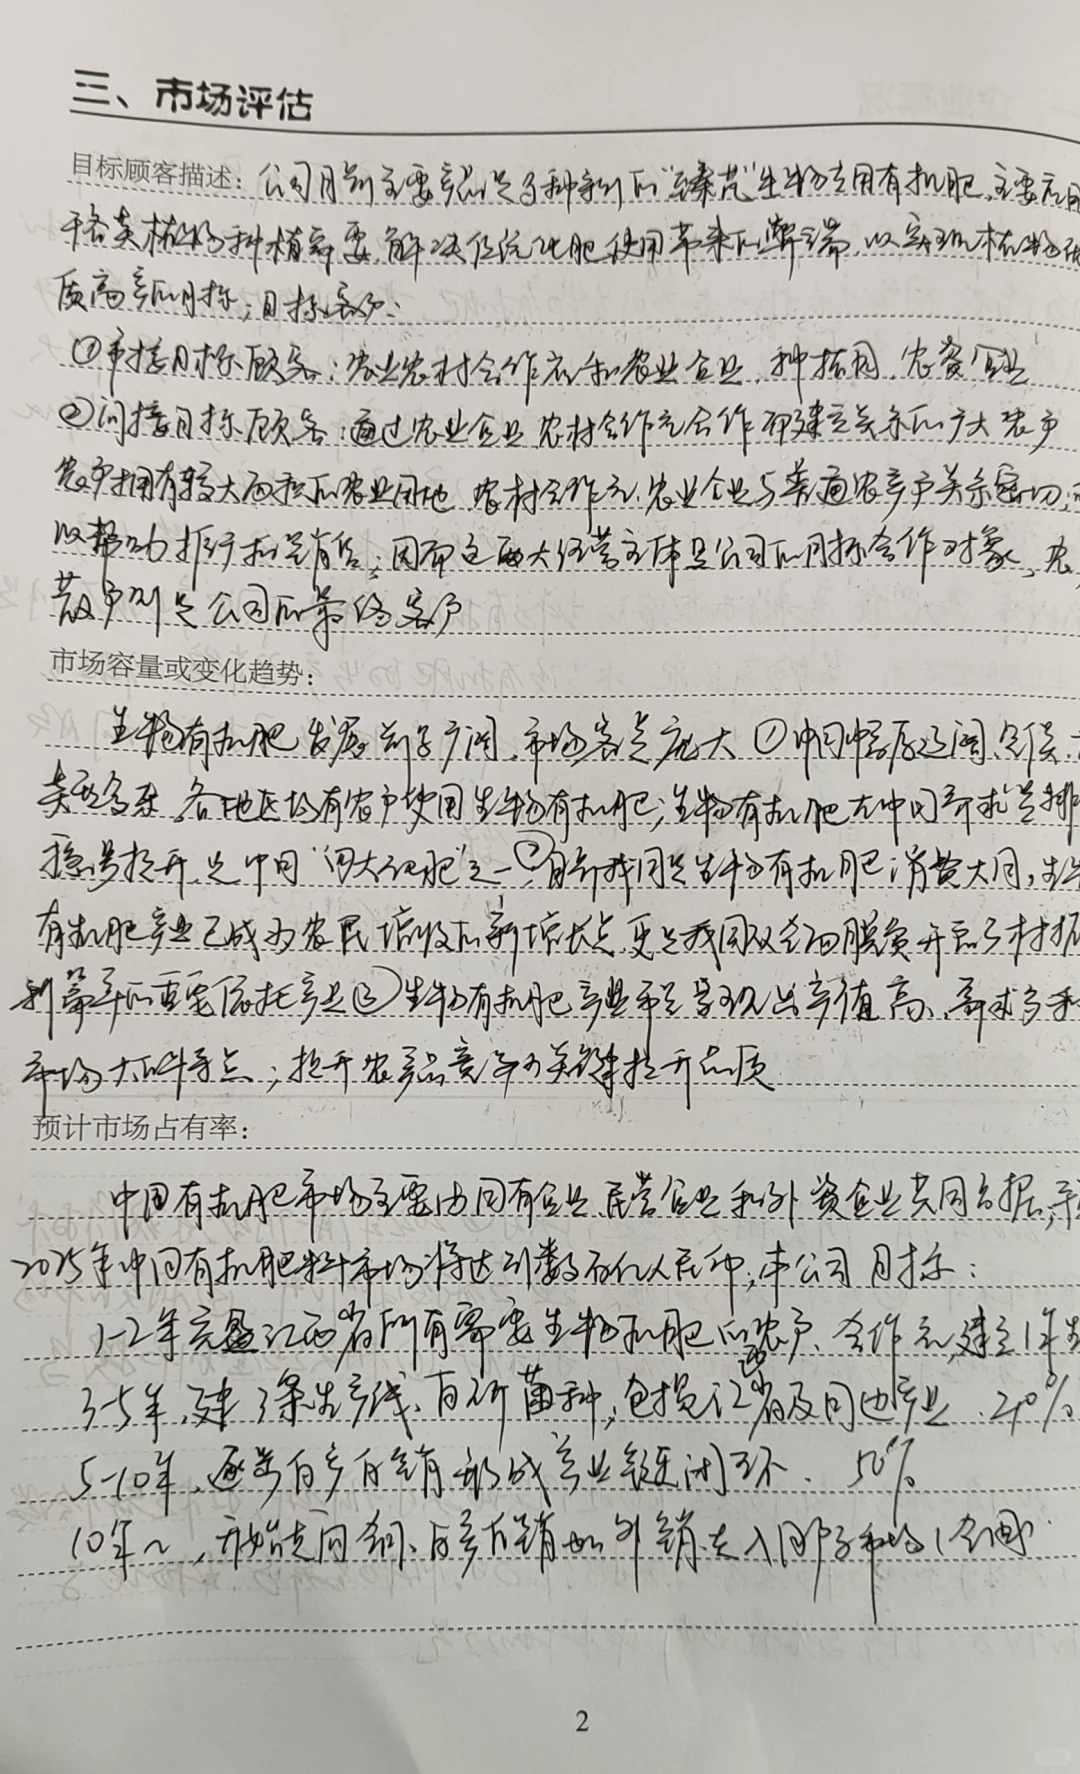 三、市场评估
目标顾客描述：公司目前主要产品是多种系列的"臻芃"生物专用有机肥，主要应用
于各类植物种植需要，解决传统化肥使用带来的弊端，以实现植物优
质高产的目标；目标客户：
①直接目标顾客：农业农村合作社和农业企业、种植园、农资企业
②间接目标顾客：通过农业企业农村合作社合作而建立关系的广大农户
农户拥有较大面积的农业用地 农村合作社、农业企业与普通农户关系密切，可
以帮助推广和销售；因而这两大经营主体是公司的目标合作对象，农
散户则是公司的最终客户
市场容量或变化趋势：
生物有机肥发展前景广阔，市场容量庞大 ①中国幅员辽阔、气候、
类型多样，各地区均有农户使用生物有机肥；生物有机肥在中国需求量排
稳步提升，是中国"四大化肥"之一，②目前我国是生物有机肥消费大国，生物
有机肥产业已成为农民增收的新增长点，更是我国双全面脱贫开启乡村振
利等的重要依托产业③生物有机肥产业市场呈现出产值高、需求多和
市场大的特点；提升农产品竞争力关键提升品质
预计市场占有率：
中国有机肥市场主要由国有企业、民营企业和外资企业共同占据，
2025年中国有机肥料市场将达到数百亿人民币，本公司目标：
1-2年完盈江西省所有需要生物有机肥的农户、合作社，建立1年
3-5年，建3条生产线、自研菌种，包揽江西省及周边产业、20%
5-10年，逐步自产自销形成产业链闭环、50%
10年~，开始走向全国、自产自销加外销走入国际市场(全国)
2